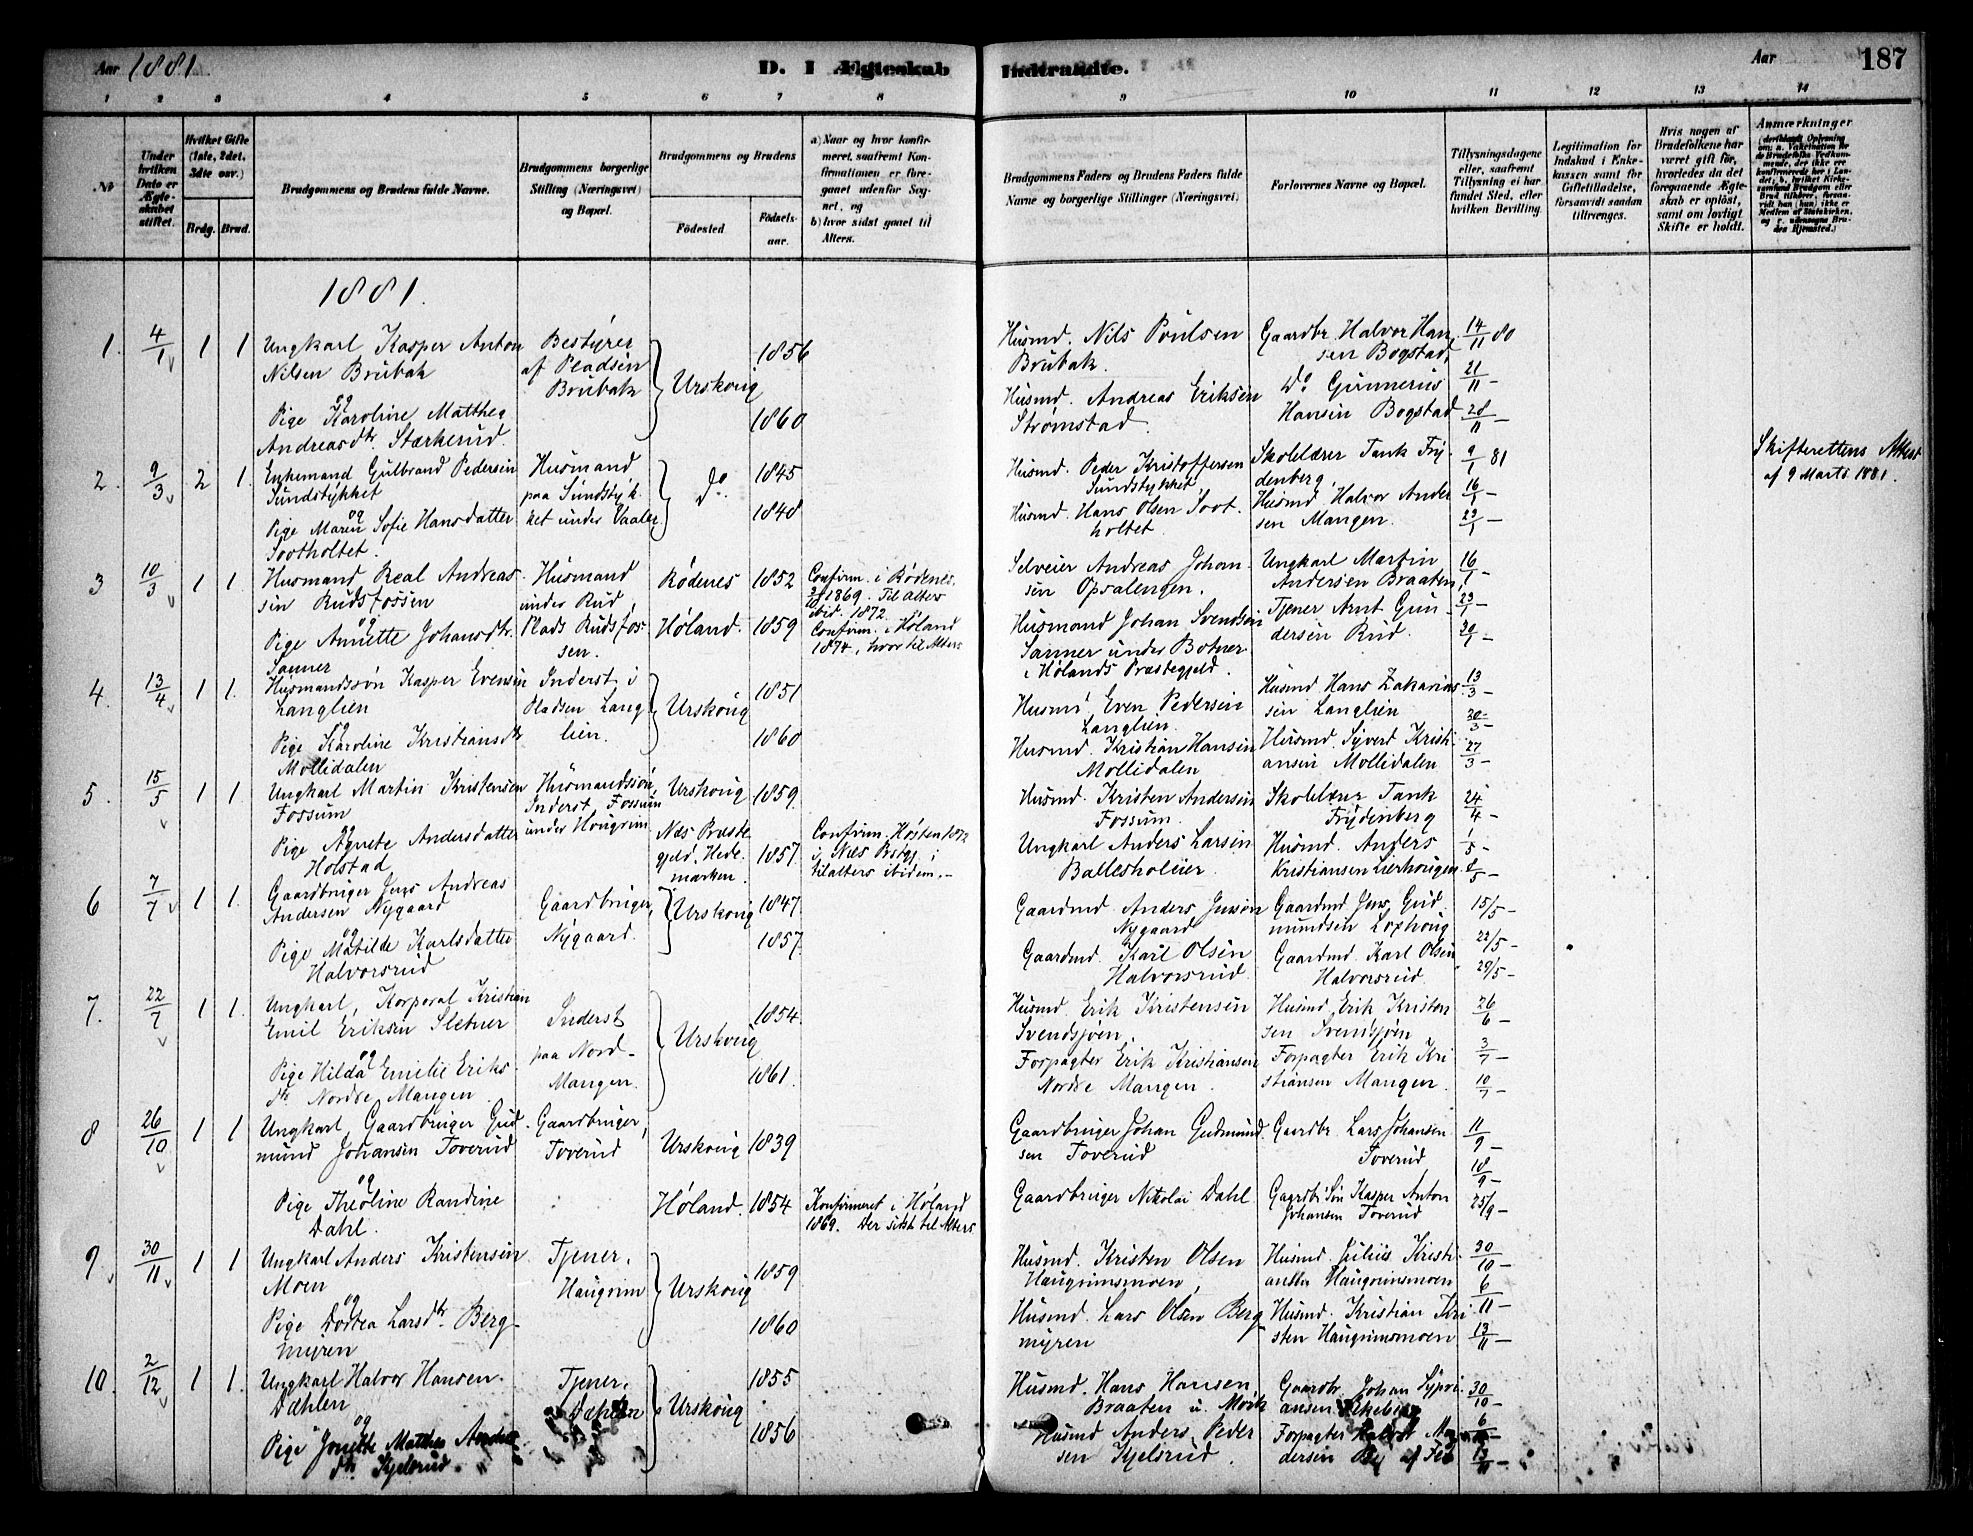 Aar 1881.
D. I Ægteskab
Indtraadte.
Aar
187
1 2 3 4 5 6 7 8
9 10 11 12 13 14
No
Under hvilken Dato er Ægteskabet stiftet.
Hvilket Gifte (1ste, 2det, 3die osv.)
Brdg. Brud.
Brudgommens og Brudens fulde Navne.
Brudgommens borgerlige Stilling (Næringsvei) og Bopæl.
Brudgommens og Brudens
Fødested
Fødselsaar.
a) Naar og hvor konfirmeret, saafremt Konfirmationen er foregaaet udenfor Sognet, og
b) hvor sidst gaaet til Alters.
Brudgommens Faders og Brudens Faders fulde Navne og borgerlige Stillinger (Næringsvei)
Forlovernes Navne og Bopæl.
Tillysningsdagene eller, saafremt Tillysning ei har fundet Sted, efter hvilken Bevilling.
Legitimation for Indskud i Enkekassen samt for Giftetilladelse, forsaavidt saadan tiltrænges.
Hvis nogen af Brudefolkene har været gift før, hvorledes da det foregaaende Ægteskab er opløst, samt om lovligt Skifte er holdt.
Anmærkninger
1881.
1. 4/1 1 1 Ungkarl Kasper Anton
Nilsen Brubak
og
Pige Karoline Mathea
Andreasdtr. Stærkerud.
Bestyrer
af Pladsen
Brubak
Urskoug
1856
1860
Husmd. Nils Poulsen
Brubak.
Husmd. Andreas Eriksen
Strømstad.
Gaardbr. Halvor Han
sen Bogstad,
Do Gunnerius
Hansen Bogstad
14/11 80
21/11 –
28/11 –
2. 9/3 2 1. Enkemand Gulbrand Pedersen
Sundstykket
og
Pige Maren Sofie Hansdatter
Sootholtet.
Husmand
paa Sundstyk
ket under Vaaler.
Do.
1845
1848
Husmd. Peder Kristoffersen
Sundstykket
Husmd. Hans Olsen Soot
holtet
Skolelærer Tank Fry
denberg,
Husmd. Halvor Ander
sen Mangen.
9/1 81
16/1 –
23/1 –
Skifterettens Attest
af 9 Marts 1881.
3 10/3 1 1. Husmand Real Andreas
sen Rudsfossen
og
Pige Annette Johansdtr.
Sanner
Husmand
under Rud,
Plads Rudsfos
sen.
Rødenes
Høland.
1852
1859
Confirm. i Rødenes.
1869. Til Alters
ibid. 1872.
Confirm. i Høland
1874, hvor til Alters
Selveier Andreas Johan
sen Opsalengen.
Husmand Johan Svendsen
Sanner under Botner
i Hølands Præstegjeld.
Ungkarl Martin
Andersen Braaten,
Tjener Arnt Gun
dersen Rud.
16/1 –
23/1 –
30/1 –
4. 13/4 1 1. Husmandssøn Kasper Evensen
Langlien
og
Pige Karoline Kristiansdtr
Mollidalen
Inderst i
Pladsen Lang
lien.
Urskoug
1851
1860
Husmd. Even Pedersen
Langlien.
Husmd. Kristian Hansen
Mollidalen
Husmd Hans Zakarias
sen Langlien
Husmd. Syvert Kristi
ansen Mollidalen
13/3 –
20/3 –
27/3 –
5. 15/5 1 1 Ungkarl Martin Kristensen
Fossum
og
Pige Agnete Andersdatter
Holstad
Husmandssøn,
Inderst, Fossum
under Hougrim
Urskoug
Næs Præste
gjeld, Hede
marken.
1859.
1857.
Confirm. Høsten 1872
i Næs Prstgj. i
tilalters ibidem. –
Husmd. Kristen Andersen
Fossum.
Ungkarl Anders Larsen
Ballesholeier
Skolelærer Tank
Frydenberg
Husmd. Anders
Kristiansen Lierhougen
24/4 –
1/5 –
8/5 –
6 7/7 1 1. Gaardbruger Jens Andreas
Andersen Nygaard
og
Pige Matilde Karlsdatter
Halvorsrud
Gaardbruger,
Nygaard.
Urskoug
1847.
1857.
Gaardmd. Anders Jensen
Nygaard
Gaardmd. Karl Olsen
Halvorsrud.
Gaardmd Jens Gud
mundsen Loxhoug
Gaardmd. Karl Olsen
Halvorsrud.
15/5 –
22/5 –
29/5 –
7. 22/7 1 1. Ungkarl, Korporal Kristian
Emil Eriksen Sletner
og
Pige Hilda Emilie Eriks
dtr. Nordre Mangen
Inderst
paa Nord-
Mangen.
Urskoug
1854.
1861.
Husmd. Erik Kristensen
Svendsjøen,
Forpagter Erik Kristiansen
Nordre Mangen.
Husmd Erik Kristen
sen Svendsjøen
Forpagter Erik Kri
stiansen Mangen.
26/6 –
3/7 –
10/7 –
8 26/10 1 1 Ungkarl, Gaardbruger Gud
mund Johansen Toverud
og
Pige Theoline Randine
Dahl.
Gaardbruger,
Toverud
Urskoug
Høland.
1839
1854
Konfirmeret i Høland
1869. Der sidst til Alters
Gaardbruger Johan Gudmund
sen Toverud
Gaardbruger Nikolai Dahl
Gaardbr Lars Johansen
Toverud
Gaardb. Søn Kasper Anton
Johansen Toverud
11/9 –
18/9 –
25/9 –
9 30/11 1 1 Ungkarl Anders Kristensen
Moen
og
Pige Dortea Larsdtr. Berg-
myren
Tjener.
Haugrim
Urskoug
1859
1860
Husmd. Kristen Olsen
Haugrimsmoen,
Husmd. Lars Olsen Berg
myren
Husmd. Julius Kristi
ansen Haugrimsmoen
Husmd. Kristian Kri
sten Haugrimsmoen
30/10 –
6/11 –
13/11 –
10. 2/12 1 1. Ungkarl Halvor Hansen
Dæhlen
og
Pige Jonette Mathea Anders
dtr. Kjelsrud.
Tjener.
Dæhlen
Urskoug
1855
1856
Husmd. Hans Hansen
Braaten u. Mork
Husmd Anders Peder
sen Kjelsrud.
Gaardbr. Johan Sypri
ansen
Forpagter Halvor
dersen
30/10 –
6/11 –
13/11 –